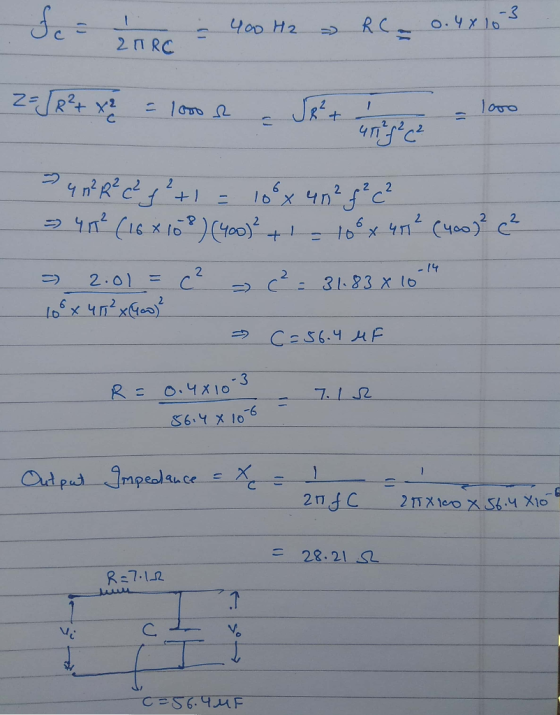 f_c = 1/(2πRC) = 400 Hz ⇒ RC = 0.4×10^-3
Z=√(R²+X_c²) = 1000 Ω = √(R²+1/(4π²f²C²)) = 1000
⇒ 4π²R²C²f²+1 = 10^6 × 4π² f²C²
⇒ 4π² (16×10^-8)(400)² + 1 = 10^6 × 4π² (400)² C²
⇒ 2.01/(10^6×4π²×(400)²) = C² ⇒ C² = 31.83 × 10^-14
⇒ C = 56.4 μF
R = 0.4×10^-3/(56.4×10^-6) = 7.1 Ω
Output Impedance = X_c = 1/(2πfC) = 1/(2π×100×56.4×10^-6)
= 28.21 Ω
R=7.1Ω
V_i C V_o
C=56.4μF